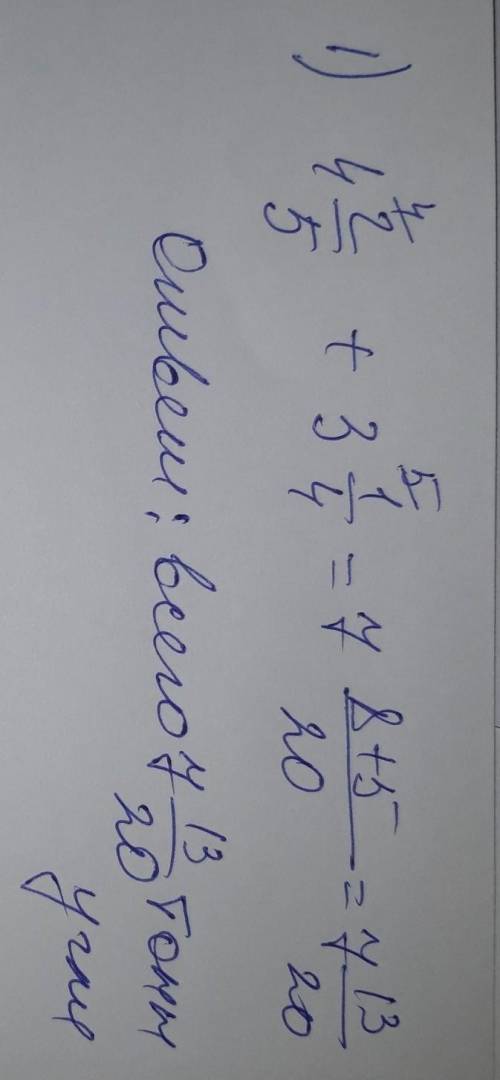 1) 4 2/5 ⁴ + 3 1/4 ⁵ = 7 (8+5)/20 = 7 13/20
Ответ: всего 7 13/20 тонн
угля